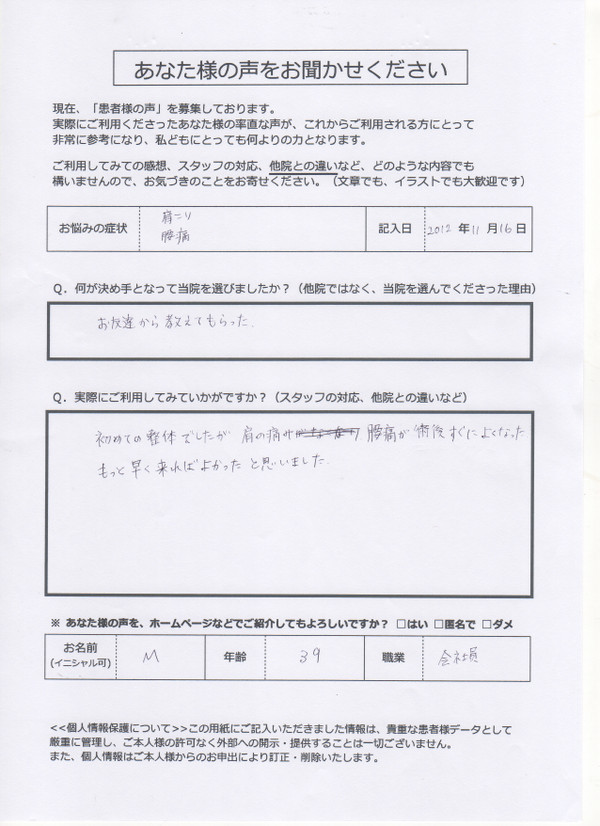 あなた様の声をお聞かせください
現在、「患者様の声」を募集しております。
実際にご利用くださったあなた様の率直な声が、これからご利用される方にとって
非常に参考になり、私どもにとっても何よりの力となります。
ご利用してみての感想、スタッフの対応、他院との違いなど、どのような内容でも
構いませんので、お気づきのことをお寄せください。（文章でも、イラストでも大歓迎です）
お悩みの症状 肩こり 記入日 2012 年 11 月 16 日
腰痛
Q．何が決め手となって当院を選びましたか？（他院ではなく、当院を選んでくださった理由）
お友達から教えてもらった。
Q．実際にご利用してみていかがですか？（スタッフの対応、他院との違いなど）
初めての整体でしたが 肩の痛み 腰痛が 術後すぐによくなった
もっと早く来ればよかったと思いました。
※ あなた様の声を、ホームページなどでご紹介してもよろしいですか？ □はい □匿名で □ダメ
お名前 M 年齢 39 職業 会社員
(イニシャル可)
<<個人情報保護について>>この用紙にご記入いただきました情報は、貴重な患者様データとして
厳重に管理し、ご本人様の許可なく外部への開示・提供することは一切ございません。
また、個人情報はご本人様からのお申出により訂正・削除いたします。